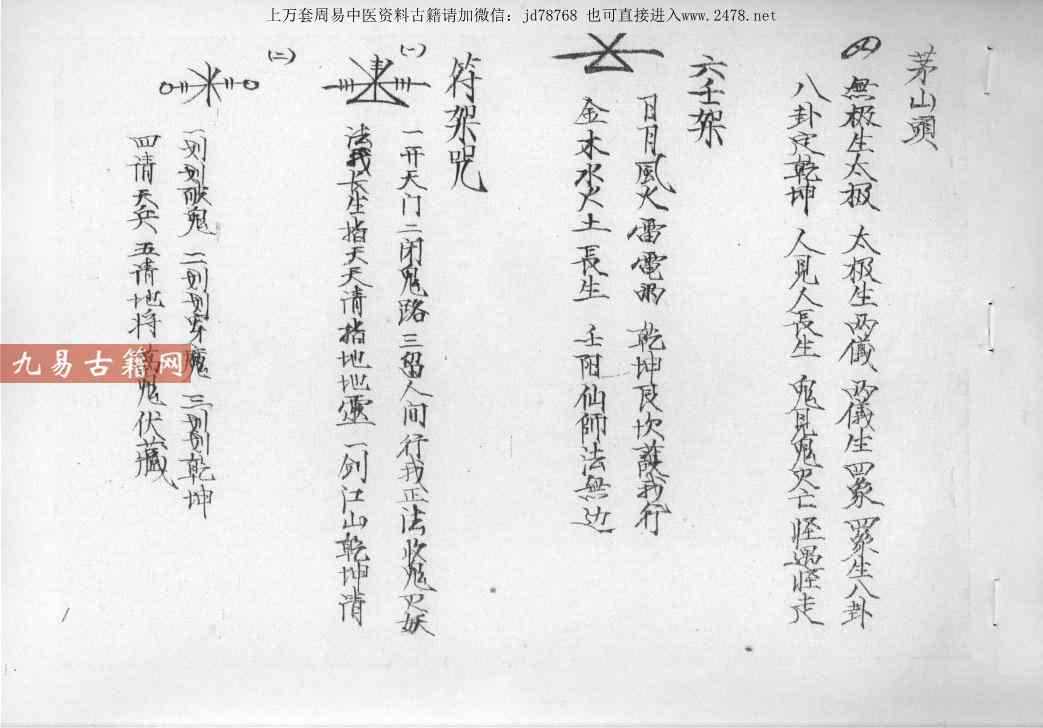 上万套周易中医资料古籍请加微信：jd78768 也可直接进入www.2478.net
茅山頭
㈣ 無极生太极 太极生两儀 两儀生四象 四象生八卦
八卦定乾坤 人見人長生 鬼見鬼灭亡 怪遇怪走
六壬架
日月風火 雷電雨 乾坤艮坎護我行
金木水火土長生 壬阳仙師法無边
符架咒
(一)
一开天门二闭鬼路三留人间行我正法收鬼灭妖
法我长生指天天清指地地靈一剑江山乾坤清
(二)
一划划破鬼 二划划穿魔 三划划乾坤
四请天兵 五请地将 鬼伏藏
九易古籍网